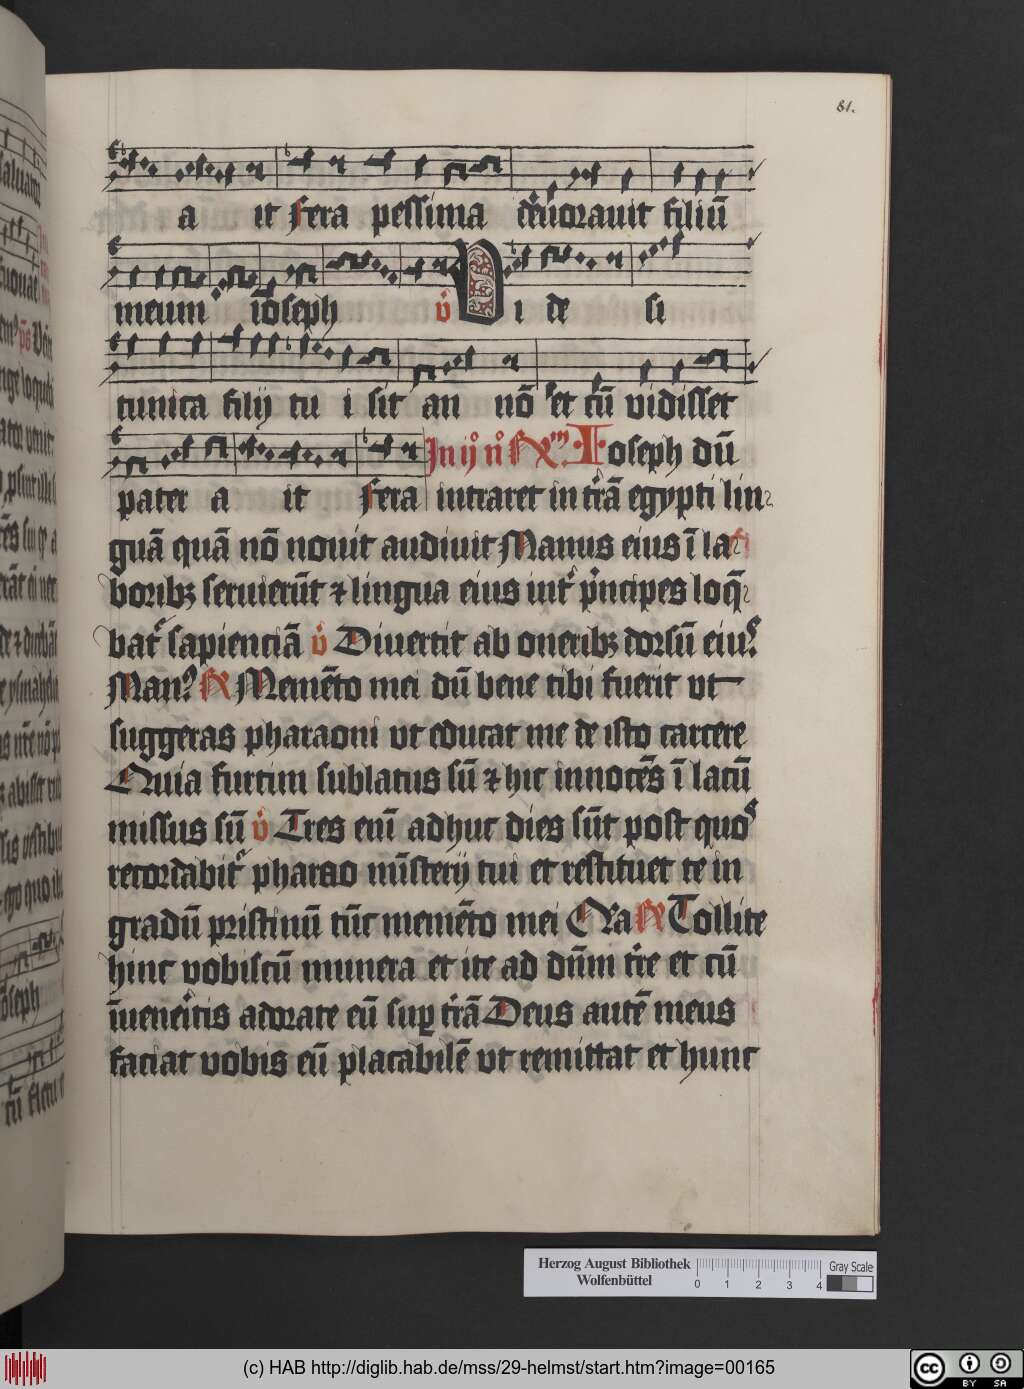 81.
a it fera pessima deuorauit filiū
meum ioseph v̊ Vi de si
tunica filij tui sit an nō et cū vidisset
pater a it fera In ij nō RX Ioseph dū
intraret in trā egypti lin
guā quā nō nouit audiuit Manus eius ī la
boribz seruierūt ⁊ lingua eius int pncipes loq̄
bat sapienciā v̊ Diuertit ab oneribz dorsū eiuꝰ
Manꝰ RX Memēto mei dū bene tibi fuerit vt
suggeras pharaoni vt educat me de isto carcere
Quia furtim sublatus sū ⁊ hic innocēs ī lacū
missus sū v̊ Tres eni adhuc dies sūt post quoꝰ
recordabit pharao mīsterij tui et restituet te in
gradū pristinū tūc memēto mei Qia RX Tollite
hinc vobiscū munera et ite ad dn̄m tre et cū
īueneritis adorate eū suꝑ trā Deus autē meus
faciat vobis eū placabilē vt remittat et hunc
Herzog August Bibliothek
Wolfenbüttel
0 1 2 3 4
Gray Scale
(c) HAB http://diglib.hab.de/mss/29-helmst/start.htm?image=00165
cc BY SA